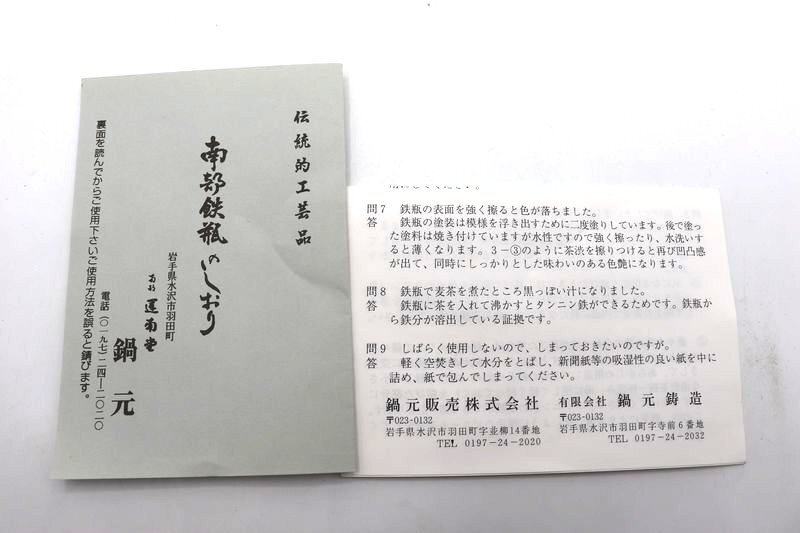 伝統的工芸品
南部鉄瓶のしおり
岩手県水沢市羽田町
鍋元
電話(〇一九七)二四―二〇二〇
裏面を読んでからご使用下さいご使用方法を誤ると錆びます。
問7 鉄瓶の表面を強く擦ると色が落ちました。
答 鉄瓶の塗装は模様を浮き出すために二度塗りしています。後で塗っ
た塗料は焼き付けていますが水性ですので強く擦ったり、水洗いす
ると薄くなります。3-③のように茶渋を擦りつけると再び凹凸感
が出て、同時にしっかりとした味わいのある色艶になります。
問8 鉄瓶で麦茶を煮たところ黒っぽい汁になりました。
答 鉄瓶に茶を入れて沸かすとタンニン鉄ができるためです。鉄瓶か
ら鉄分が溶出している証拠です。
問9 しばらく使用しないので、しまっておきたいのですが。
答 軽く空焚きして水分をとばし、新聞紙等の吸湿性の良い紙を中に
詰め、紙で包んでしまってください。
鍋元販売株式会社
〒023-0132
岩手県水沢市羽田町字並柳14番地
TEL 0197-24-2020
有限会社 鍋元鋳造
〒023-0132
岩手県水沢市羽田町字寺前6番地
TEL 0197-24-2032